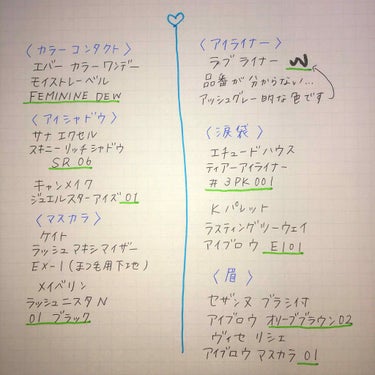 〈カラーコンタクト〉
エバー カラーワンデー
モイストレーベル
FEMININE DEW
〈アイシャドウ〉
サナ エクセル
スキニーリッチシャドウ
SR 06
キャンメイク
ジュエルスターアイズ 01
〈マスカラ〉
ケイト
ラッシュマキシマイザー
EX-1 (まつ毛用下地)
メイベリン
ラッシュニスタ N
01 ブラック
〈アイライナー〉
ラブ ライナー
品番が分からない…
アッシュグレー的な色です
〈涙袋〉
エチュードハウス
ティアーアイライナー
# 3PK 001
Kパレット
ラスティングツーウェイ
アイブロウ E101
〈眉〉
セザンヌ ブラシ付
アイブロウ オリーブブラウン 02
ヴィセ リシェ
アイブロウ マスカラ 01